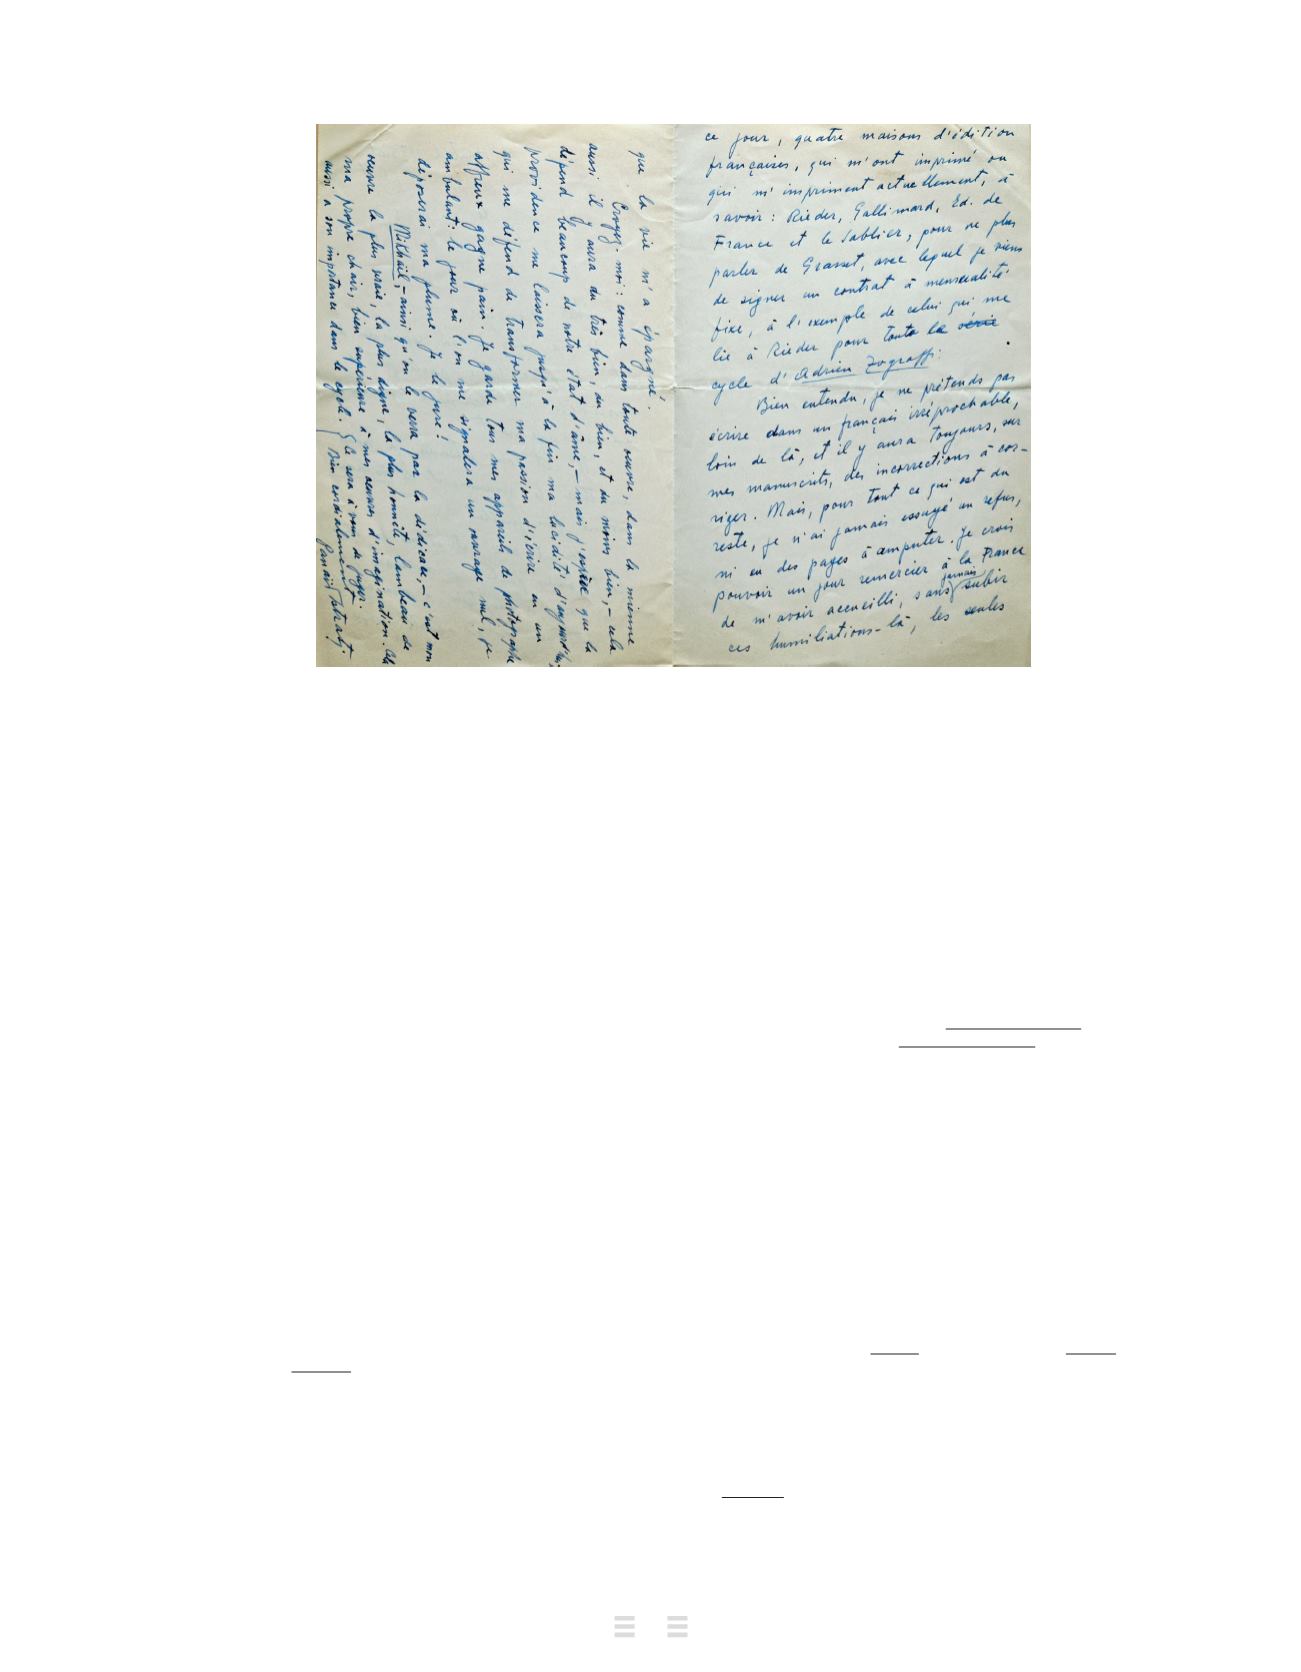 ce jour, quatre maisons d'édition
françaises, qui m'ont imprimé ou
qui m'impriment actuellement, à
savoir : Rieder, Gallimard, Ed. de
France et le Sablier, pour ne plus
parler de Grasset, avec lequel je viens
de signer un contrat à mensualité
fixe, à l'exemple de celui qui me
lie à Rieder pour tout le
cycle d'Adrien Zograffi.
Bien entendu, je ne prétends pas
écrire dans un français irréprochable,
loin de là, et il y aura toujours, sur
mes manuscrits, des incorrections à cor-
riger. Mais, pour tout ce qui est du
reste, je n'ai jamais essuyé un refus,
ni eu des pages à amputer. Je crois
pouvoir un jour remercier à la France
de m'avoir accueilli, sans jamais subir
ces humiliations-là, les seules
que la vie m'a épargné.
Croyez-moi : comme dans toute œuvre, dans la mienne
aussi il y aura du très bien, du bien, et du moins bien, – cela
dépend beaucoup de notre état d'âme, – mais j'espère que la
providence me laissera jusqu'à la fin ma lucidité d'aujourd'hui,
qui me défend de transformer ma passion d'écrire en un
affreux gagne pain. Je garde tous mes appareils de photographe
ambulant : le jour où l'on me signalera un ouvrage nul, je
déposerai ma plume. Je le jure !
Mikhaïl, – ainsi qu'on le verra par la dédicace, – c'est mon
œuvre la plus vraie, la plus digne, la plus honnête, lambeau de
ma propre chair, bien supérieure à mes œuvres d'imagination. Cela
aussi a son importance dans le cycle. Ce sera à vous de juger.
Bien cordialement,
Panaït Istrati.